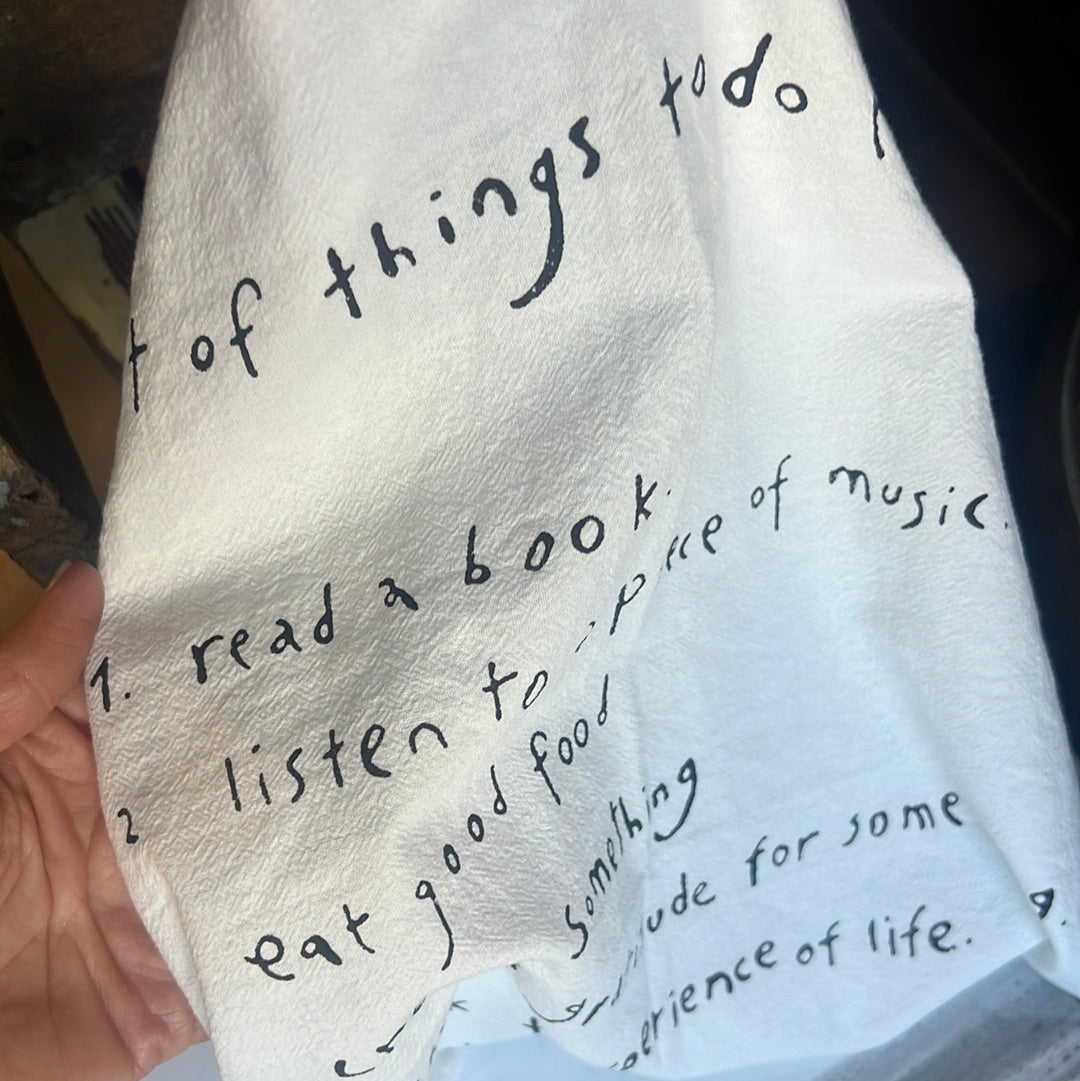 t of things to do
1. read a book.
2 listen to a piece of music.
eat good food
something
gratitude for some
experience of life.